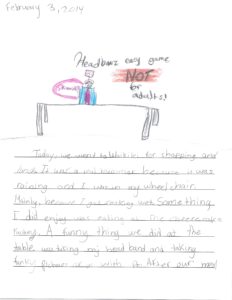 February 3, 2014
Headbanz easy game
NOT
for
adults!
Today we went to for shopping and
lunch It was a because it was
raining and I was in my wheel chair
Mainly, because I got with Something
I did enjoy was eating at The
Factory. A funny thing we did at The
table was my head band and taking
funky with it. After our meal